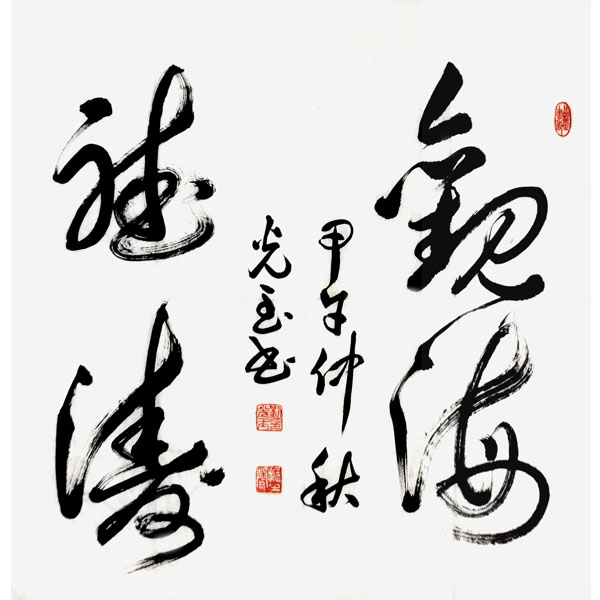 觀海
聽濤
甲午仲秋
光玉书